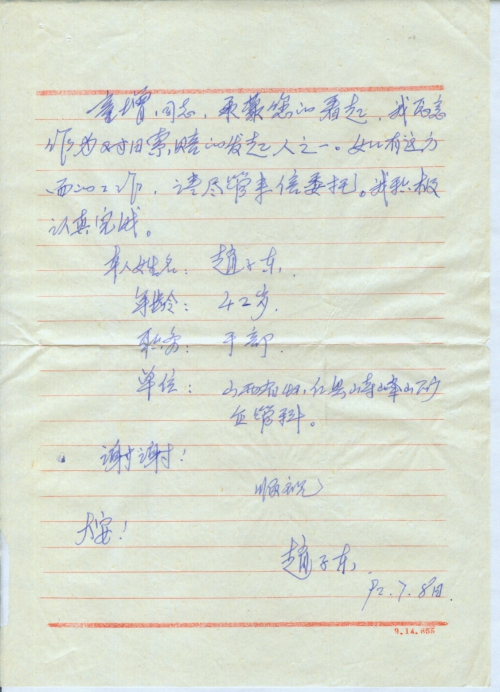 童增同志，承蒙您的看起，我愿意
作为对日索赔的发起人之一。如有这方
面的工作，请尽管来信委托。我积极
认真完成。
本人姓名：赵子东.
年龄：42岁.
职务：干部.
单位：山西省
管科。
谢谢！
顺祝
大安！
赵子东.
92.7.8日.
9.14.855